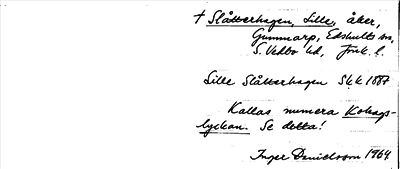 † Slåtterhagen, Lille, åker,
Gummarp, Edshults sn,
S. Vedbo hd, Jönk. l.
Lille Slåtterhagen Sk k 1887
Kallas numera Kohags-
lyckan. Se detta!
Inger Danielsson 1964